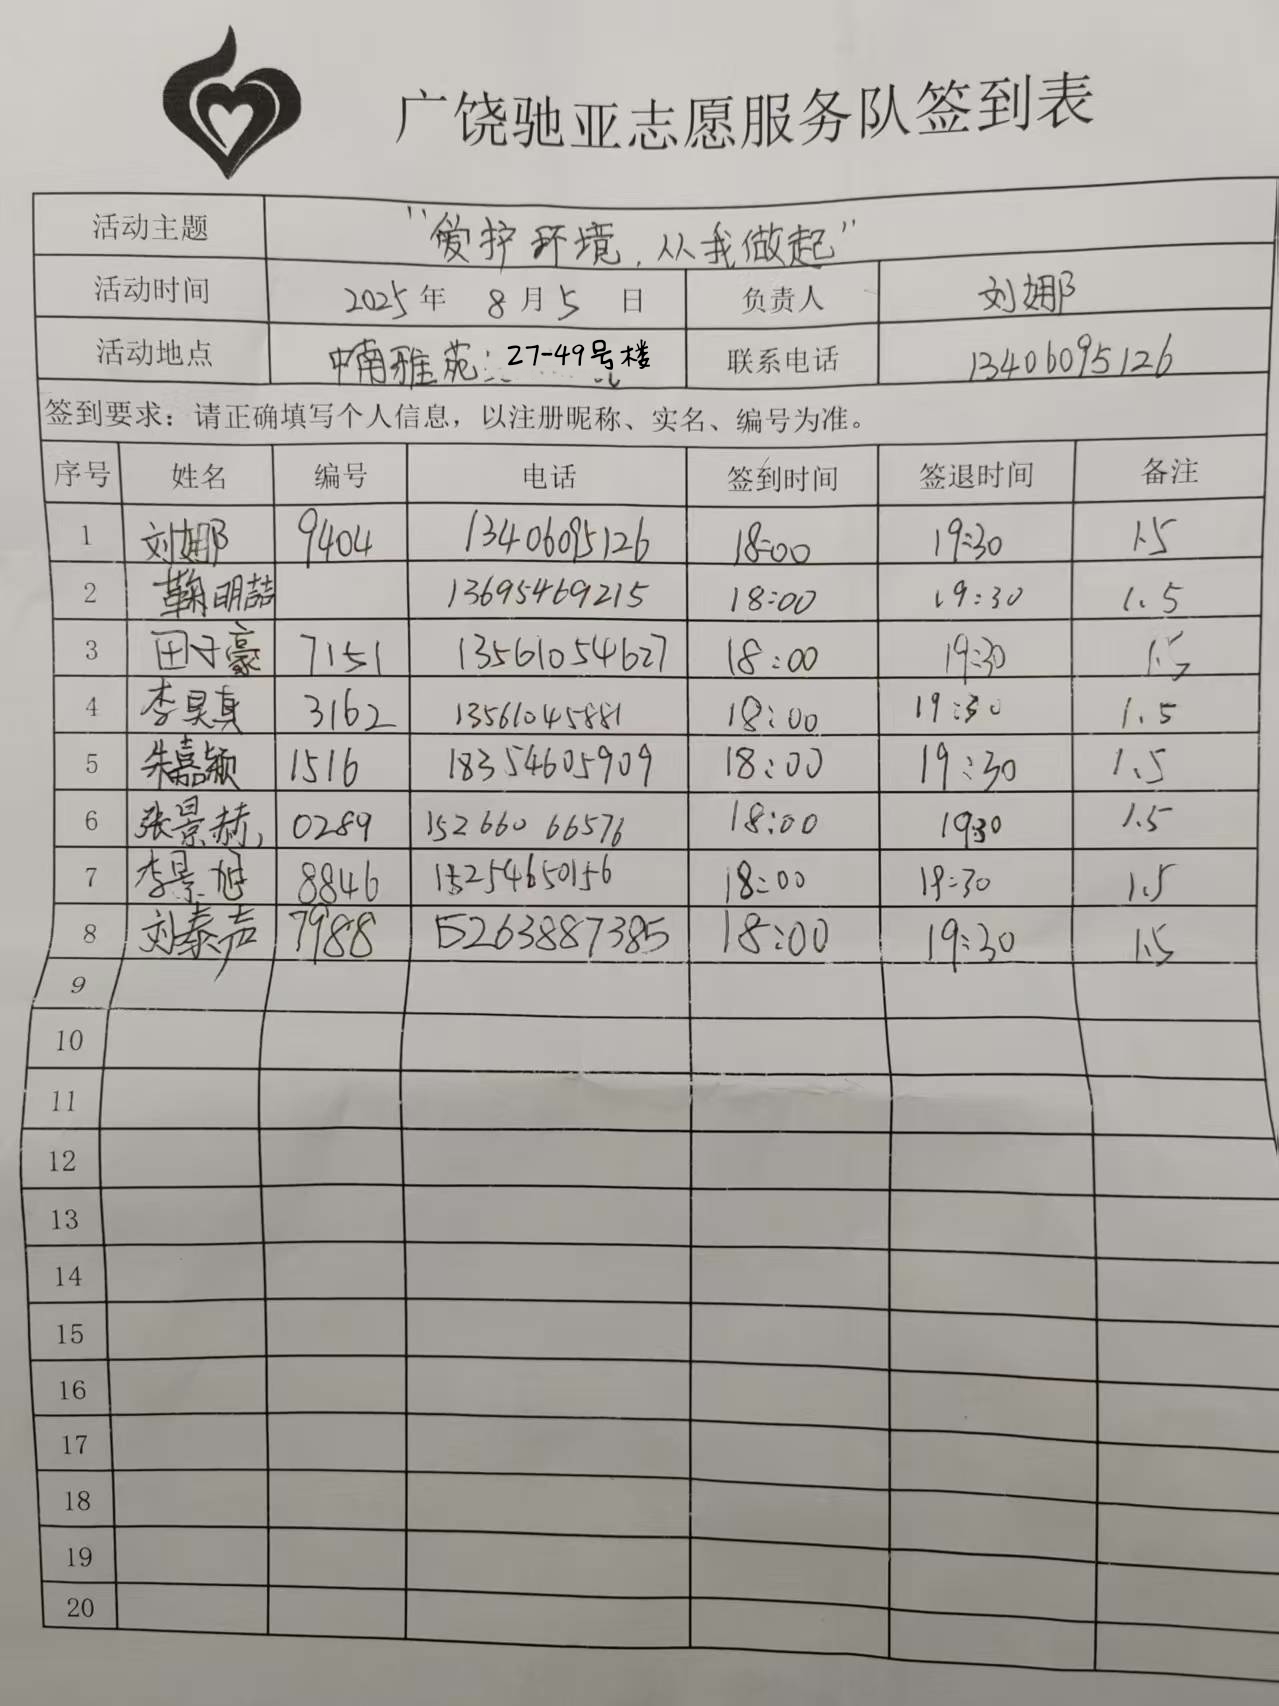 广饶驰亚志愿服务队签到表
活动主题 "爱护环境，从我做起"
活动时间 2025年 8月5日 负责人 刘娜
活动地点 中南雅苑 27-49号楼 联系电话 13406095126
签到要求：请正确填写个人信息，以注册昵称、实名、编号为准。
序号 姓名 编号 电话 签到时间 签退时间 备注
1 刘娜 9404 13406095126 18:00 19:30 1.5
2 鞠明喆 13695469215 18:00 19:30 1.5
3 田子豪 7151 13561054627 18:00 19:30 1.5
4 李昊真 3162 13561045881 18:00 19:30 1.5
5 朱嘉颖 1516 18354605909 18:00 19:30 1.5
6 张景赫 0289 15266066576 18:00 19:30 1.5
7 李景旭 8846 15254650156 18:00 19:30 1.5
8 刘泰声 7988 15263887385 18:00 19:30 1.5
9
10
11
12
13
14
15
16
17
18
19
20